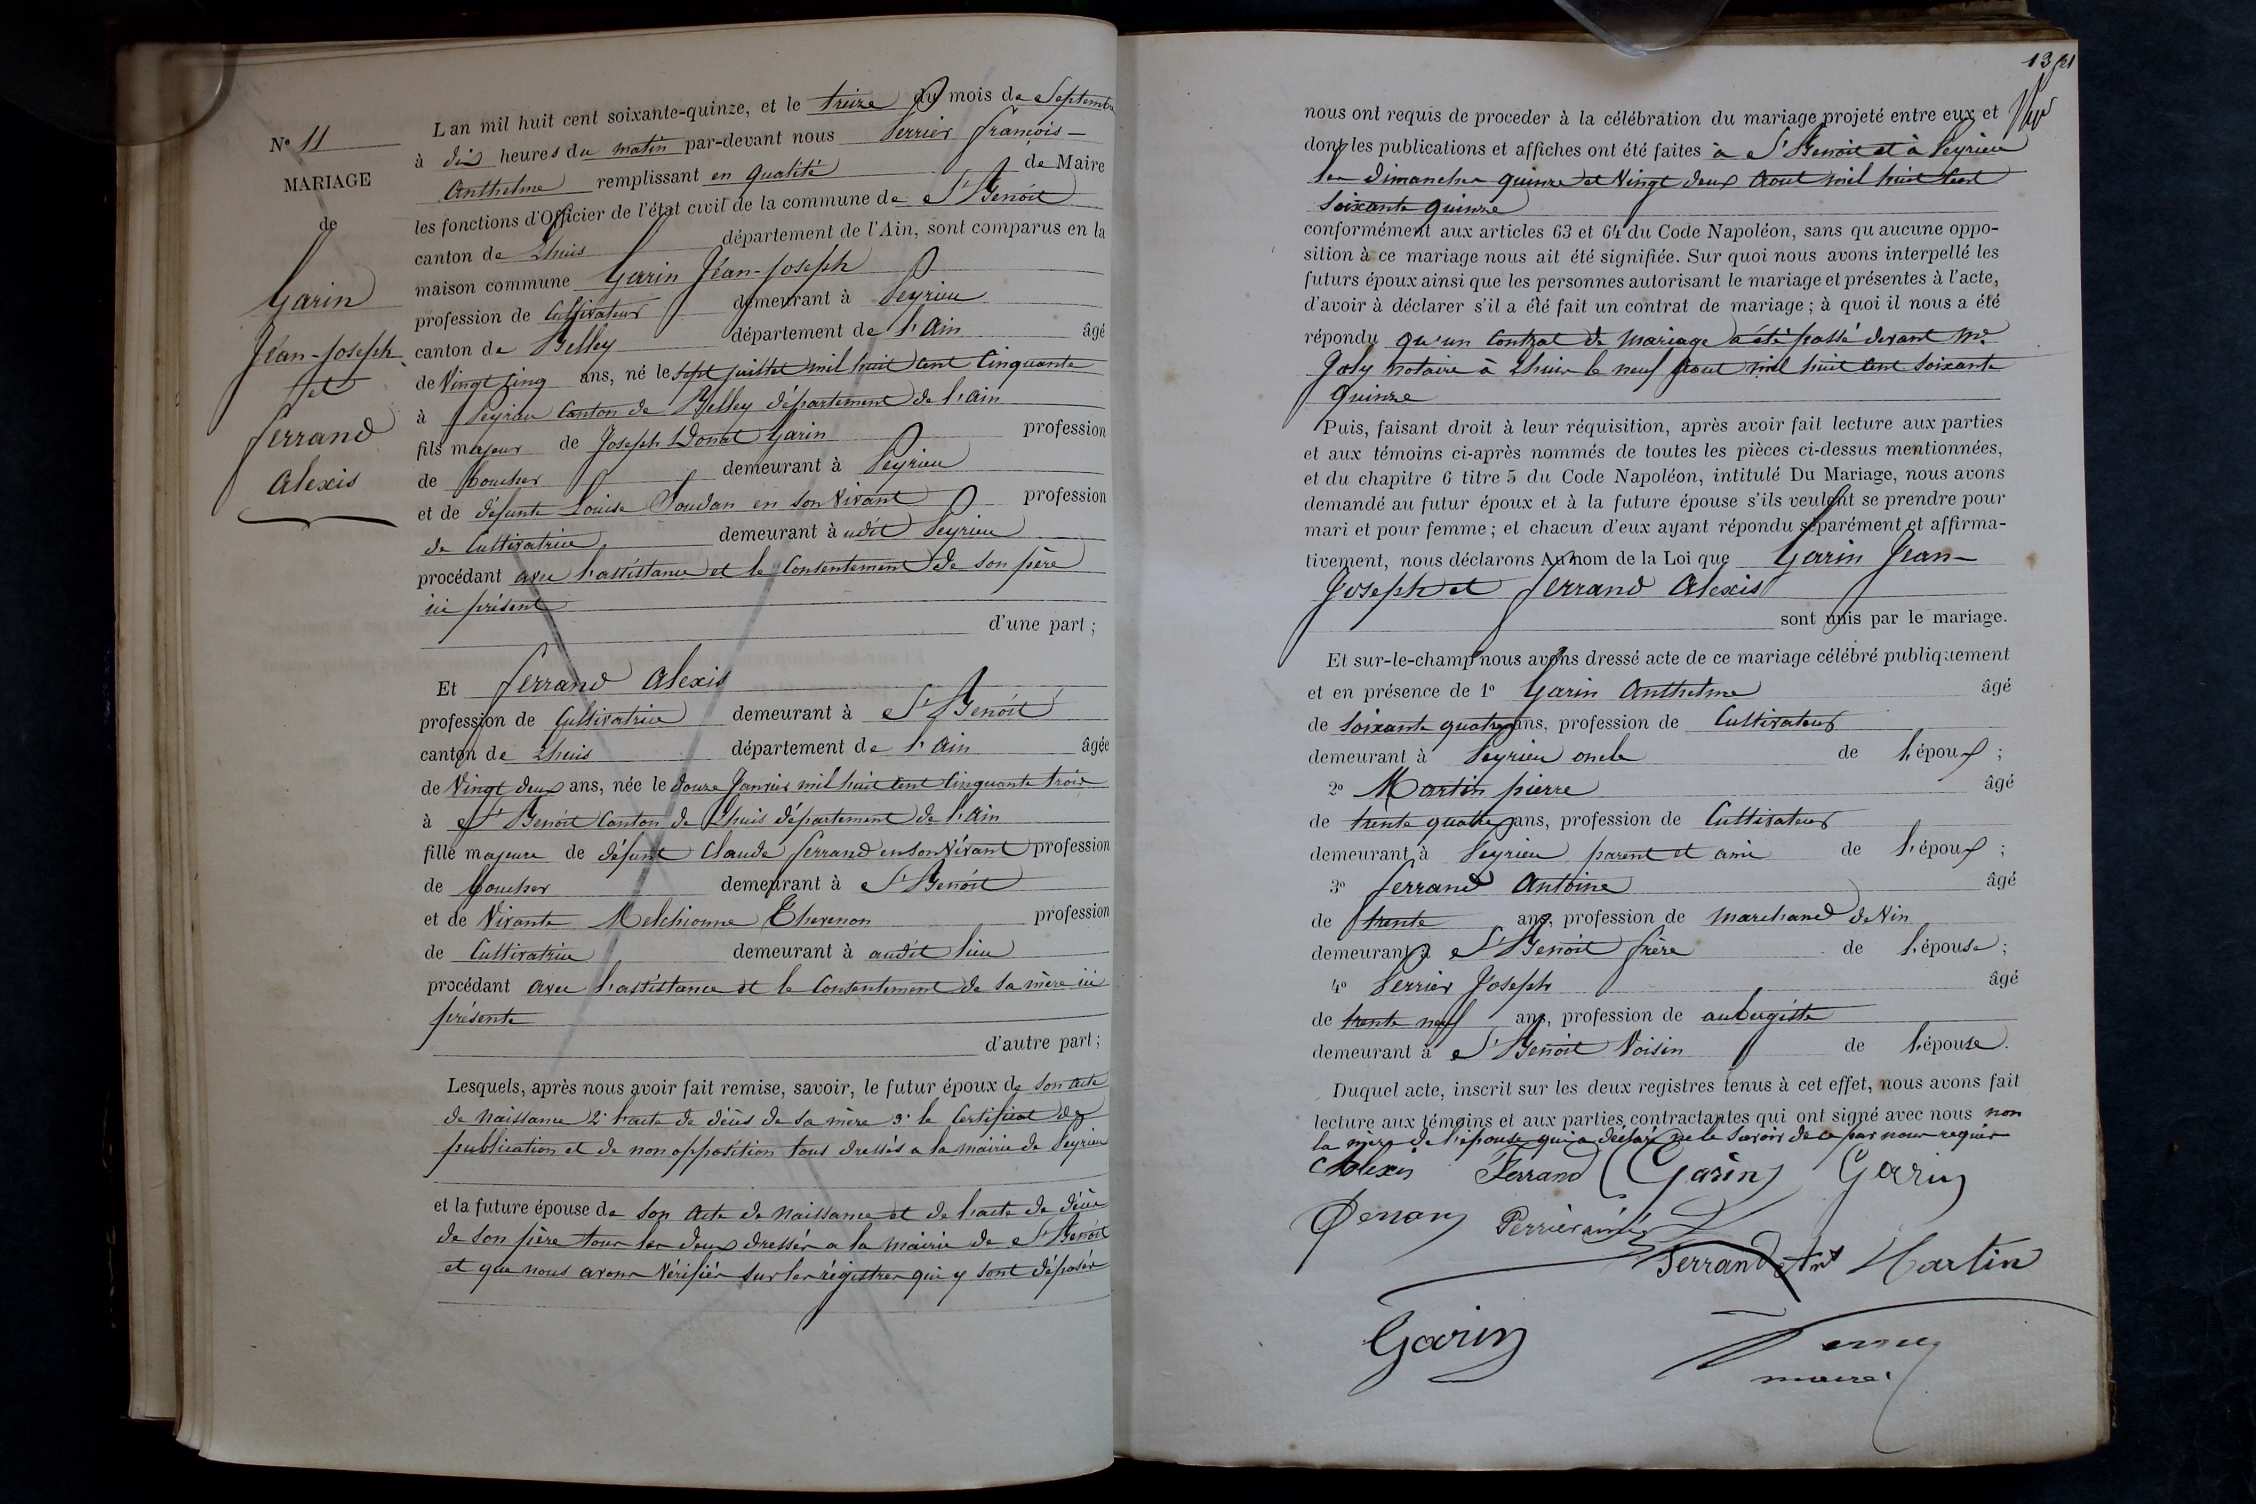 N° 11
MARIAGE
de
Garin
Jean-Joseph
et
Ferrand
Alexis
L'an mil huit cent soixante-quinze, et le treize du mois de Septembre
à dix heures du matin par-devant nous Perrier françois-
Anthelme remplissant en qualité de Maire
les fonctions d'Officier de l'état civil de la commune de St Benoit
canton de Lhuis département de l'Ain, sont comparus en la
maison commune Garin Jean-Joseph
profession de Cultivateur demeurant à Peyrieu
canton de Belley département de l'Ain âgé
de Vingt cinq ans, né le sept juillet mil huit cent Cinquante
à Peyrieu Canton de Belley département de l'ain
fils majeur de Joseph Donat Garin profession
de boucher demeurant à Peyrieu
et de défunte Louise Soudan en son Vivant profession
de Cultivatrice demeurant à udit Peyrieu
procédant avec l'assistance et le Consentement de son père
ici présent
d'une part ;
Et ferrand Alexis
profession de Cultivatrice demeurant à St Benoit
canton de Lhuis département de l'Ain âgée
de Vingt deux ans, née le douze Janvier mil huit cent Cinquante trois
à St Benoit Canton de Lhuis département de l'ain
fille majeure de défunt Claude ferrand en son Vivant profession
de boucher demeurant à St Benoit
et de Vivante Melchionne Thevenon profession
de Cultivatrice demeurant à audit lieu
procédant avec l'assistance et le Consentement de sa mère ici
présente
d'autre part ;
Lesquels, après nous avoir fait remise, savoir, le futur époux de son acte
de Naissance 2° l'acte de décès de sa mère 3° le Certificat de
publication et de non opposition tous dressés a la mairie de Peyrieu
et la future épouse de son Acte de Naissance et de l'acte de décès
de son père tous les deux dressés a la mairie de St Benoit
et que nous avons Vérifiés sur les régistres qui y sont déposés
13
nous ont requis de proceder à la célébration du mariage projeté entre eux et
dont les publications et affiches ont été faites à St Benoit et à Peyrieu
les dimanches quinze et Vingt deux Aout mil huit Cent
Soixante quinze
conformément aux articles 63 et 64 du Code Napoléon, sans qu'aucune oppo-
sition à ce mariage nous ait été signifiée. Sur quoi nous avons interpellé les
futurs époux ainsi que les personnes autorisant le mariage et présentes à l'acte,
d'avoir à déclarer s'il a été fait un contrat de mariage ; à quoi il nous a été
répondu qu'un Contrat de Mariage a été passé devant Me
Joly notaire à Lhuis le neuf Aout mil huit Cent Soixante
Quinze
Puis, faisant droit à leur réquisition, après avoir fait lecture aux parties
et aux témoins ci-après nommés de toutes les pièces ci-dessus mentionnées,
et du chapitre 6 titre 5 du Code Napoléon, intitulé Du Mariage, nous avons
demandé au futur époux et à la future épouse s'ils veulent se prendre pour
mari et pour femme ; et chacun d'eux ayant répondu séparément et affirma-
tivement, nous déclarons Au nom de la Loi que Garin Jean-
Joseph et Ferrand Alexis
sont unis par le mariage.
Et sur-le-champ nous avons dressé acte de ce mariage célébré publiquement
et en présence de 1° Garin Anthelme âgé
de soixante quatre ans, profession de Cultivateur
demeurant à Peyrieu oncle de l'époux ;
2° Martin pierre âgé
de trente quatre ans, profession de Cultivateur
demeurant à Peyrieu parent et ami de l'époux ;
3° ferrand Antoine âgé
de trente ans, profession de Marchand de Vin
demeurant à St Benoit frère de l'épouse ;
4° Perrier Joseph âgé
de trente neuf ans, profession de aubergiste
demeurant à St Benoit Voisin de l'épouse.
Duquel acte, inscrit sur les deux registres tenus à cet effet, nous avons fait
lecture aux témoins et aux parties contractantes qui ont signé avec nous non
la mère de l'épouse qui a déclaré ne le savoir de ce par nous requis
Alexis Ferrand Garin Garin
Perrier ainé
Ferrand Ant Martin
Garin
maire